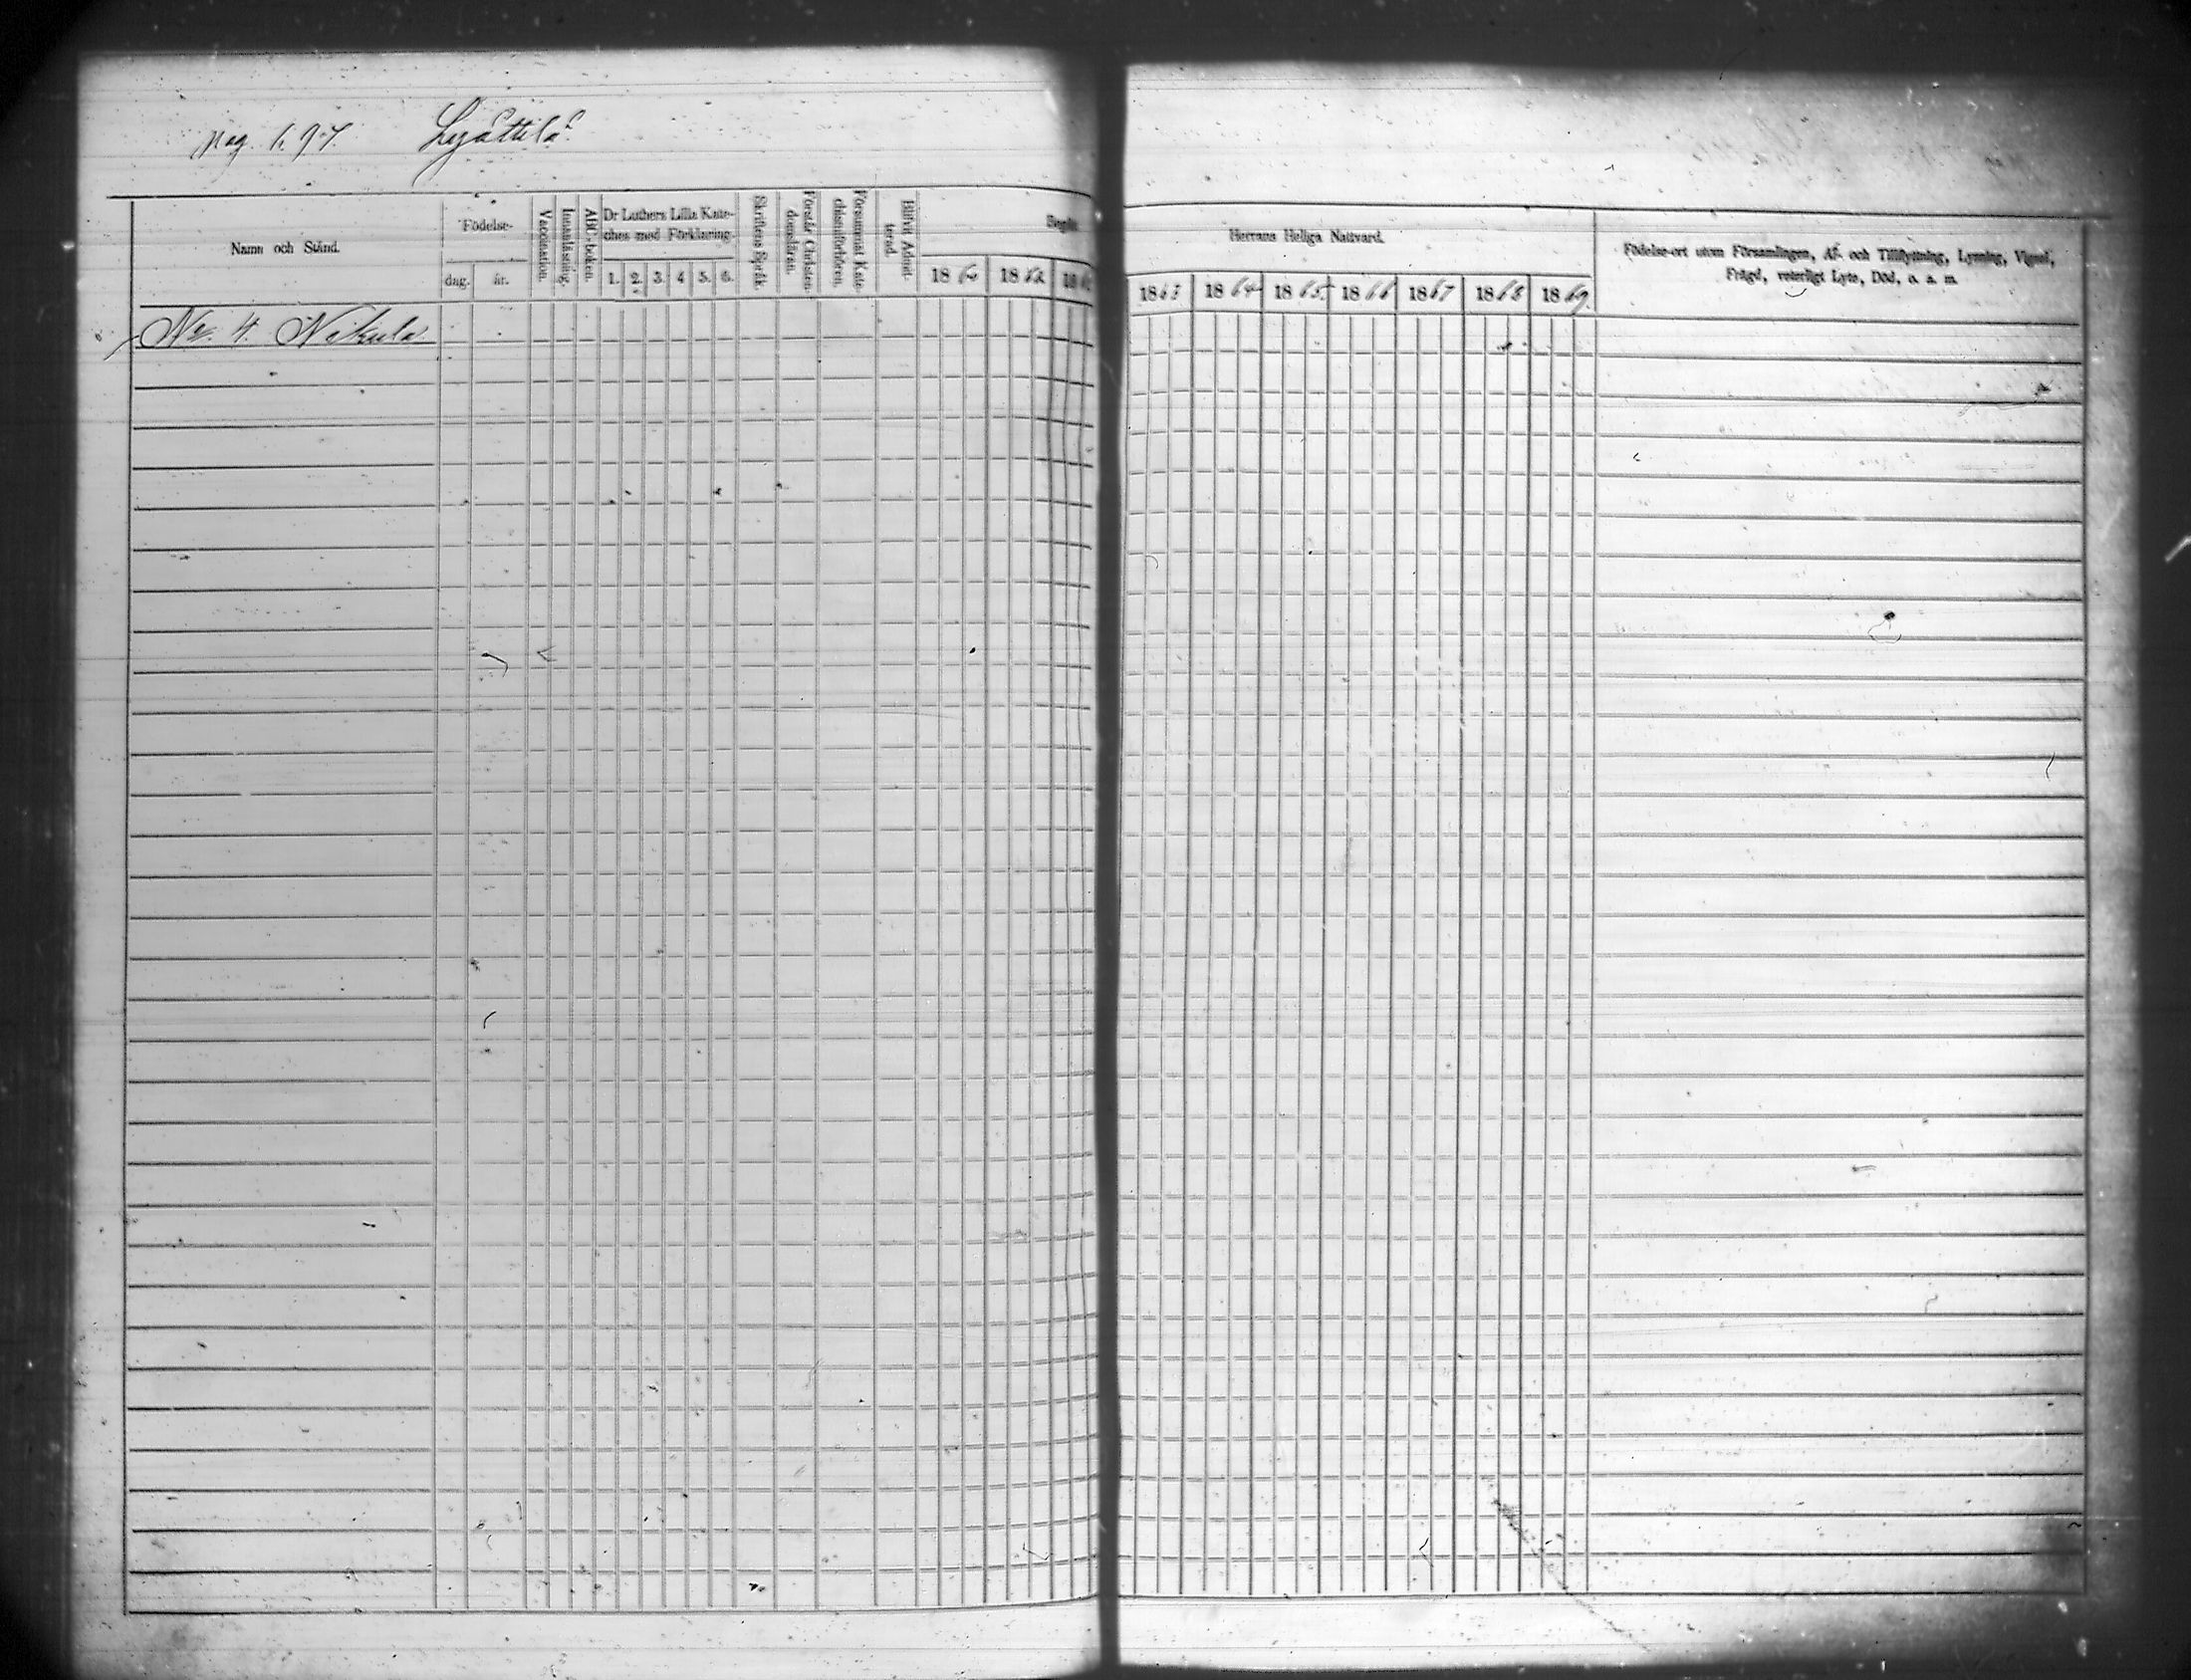 pag. 197. Lyöttilä
Namn och Stånd.
Födelse-
dag. år.
Vaccination.
Innanläsning.
ABC-boken.
Dr Luthers Lilla Kate-
ches med Förklaring.
1. 2. 3. 4 5. 6.
Skriftens Språk.
Förstår Christen-
domsläran.
Försummat Kate-
chismiförhören.
Blifvit Admit-
terad.
Begått
1862
Herrans Heliga Nattvard.
1863 1864 1865 1866 1867 1868 1869.
Födelse-ort utom Församlingen, Af- och Tillflyttning, Lysning, Vigsel,
Frägd, veterligt Lyte, Död, o. s. m.
No. 4. Nekula